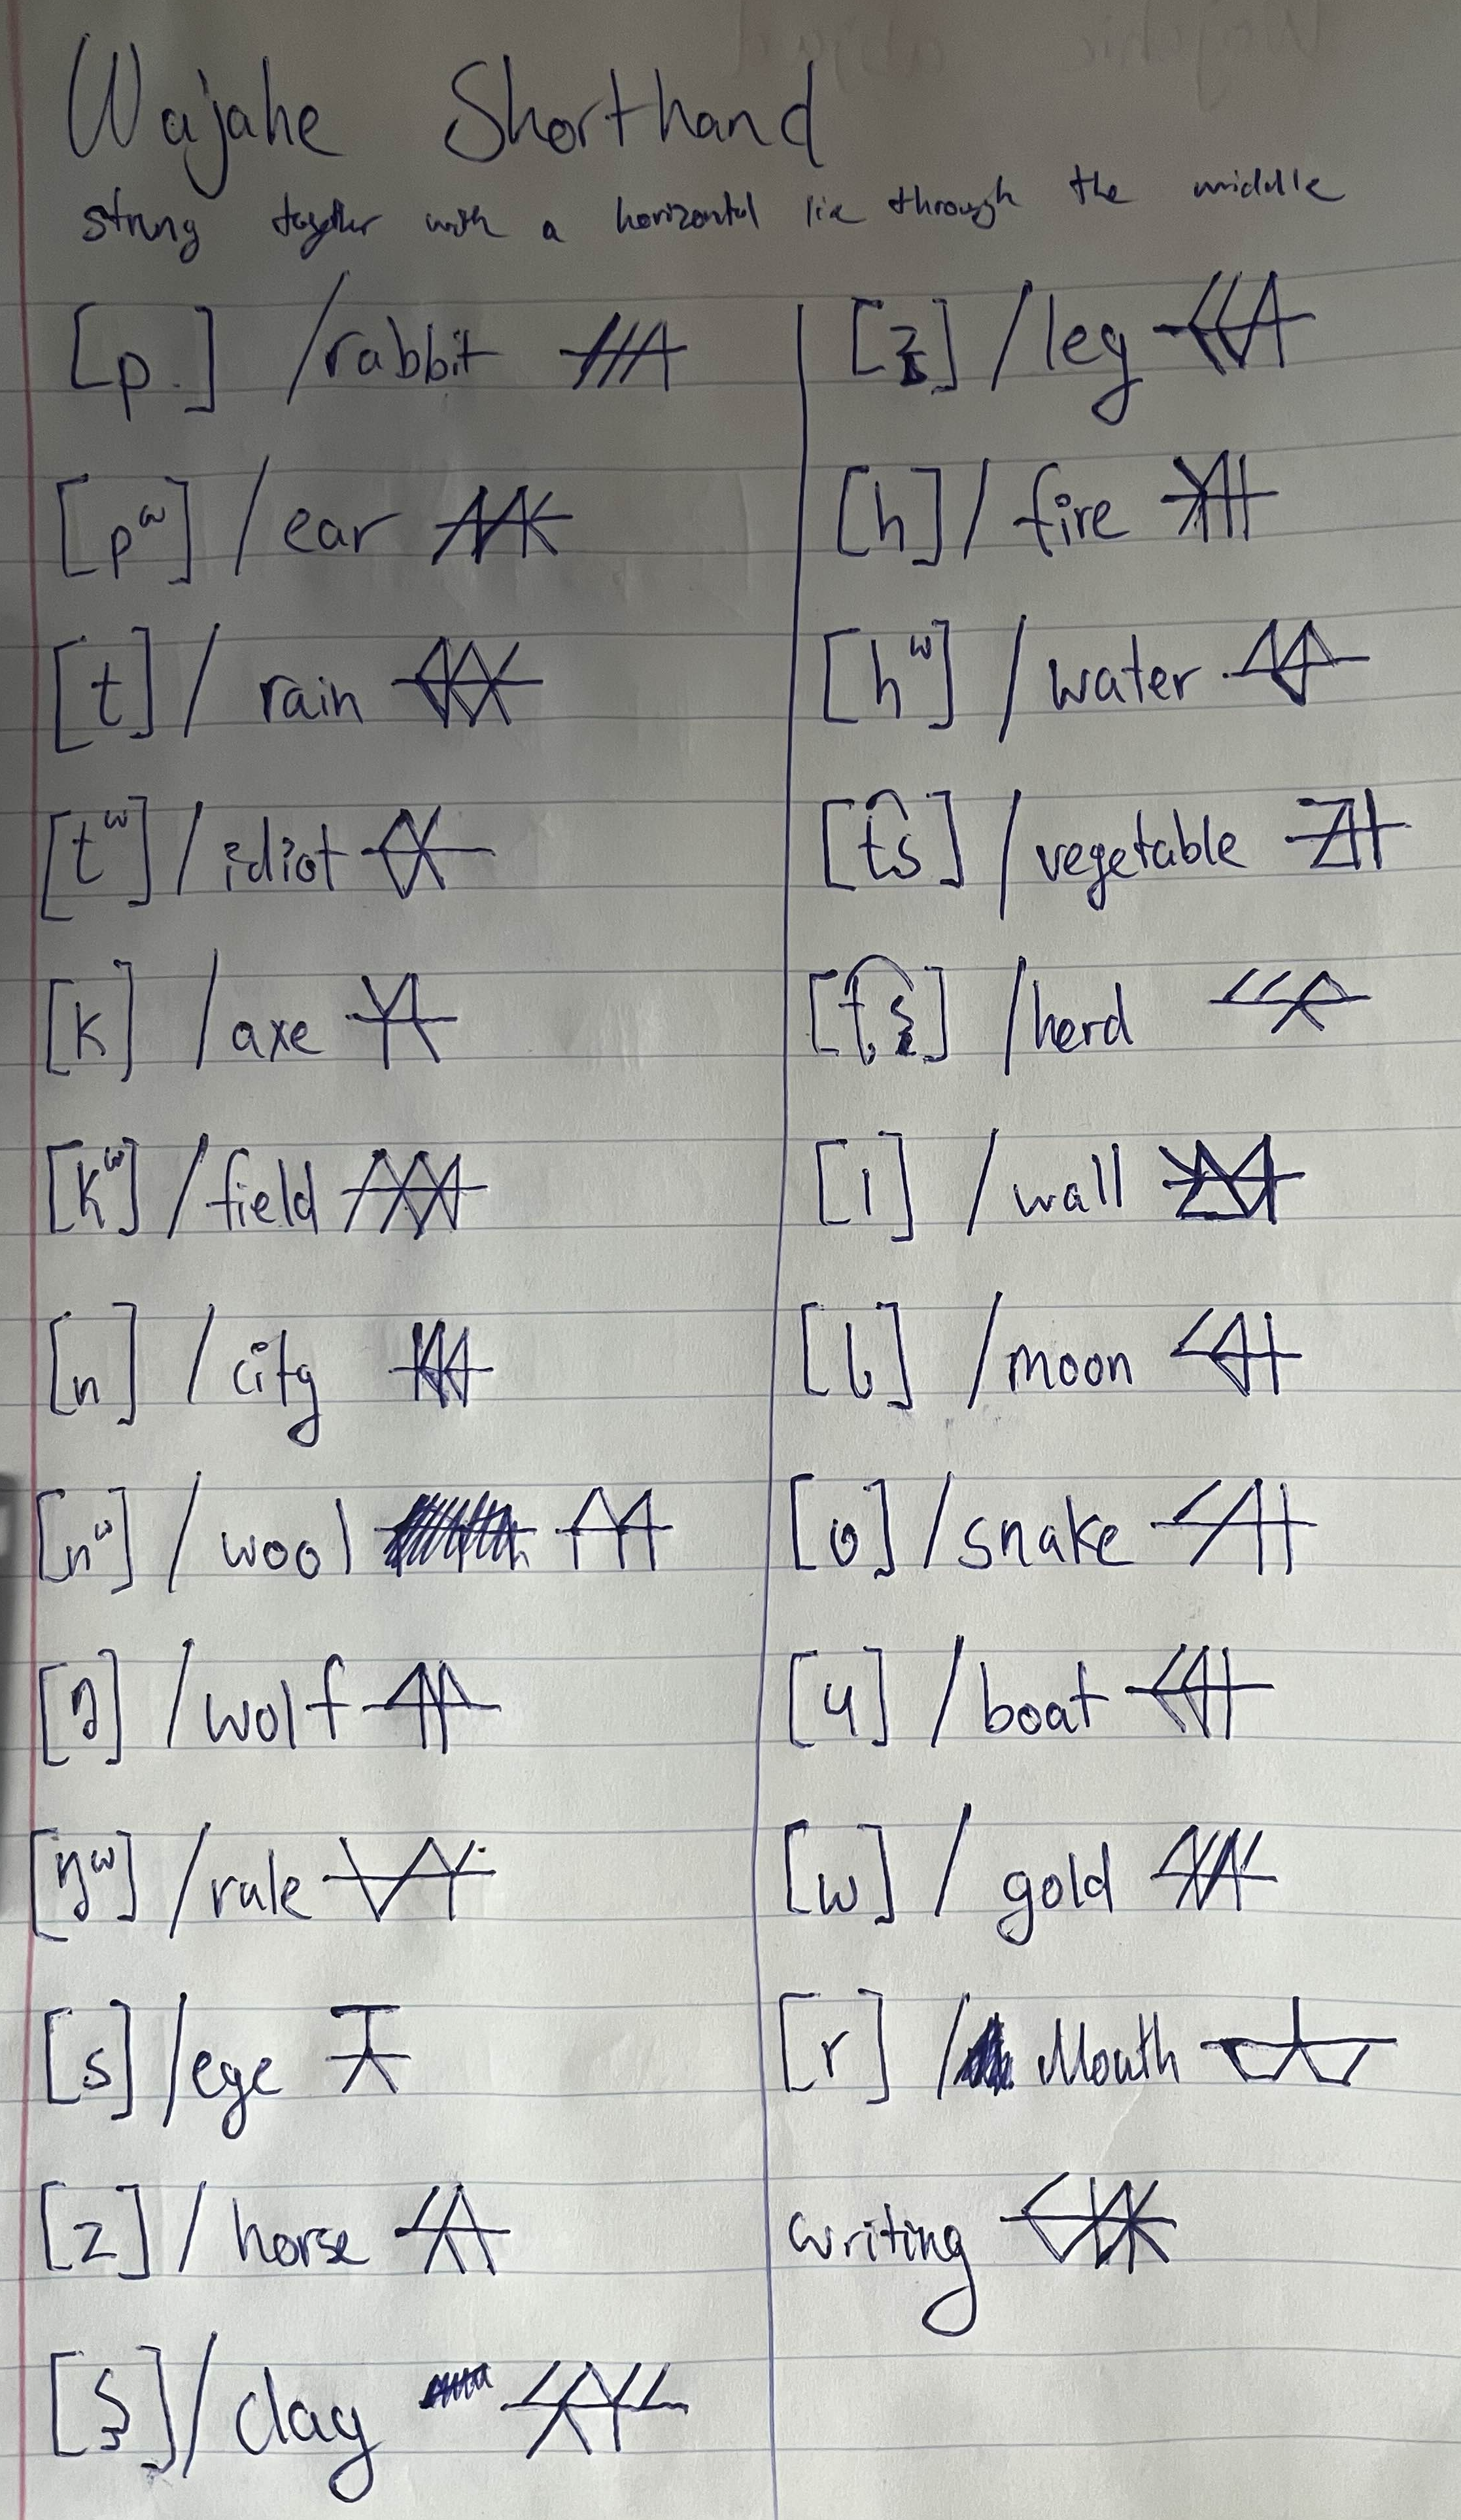 Wajahe Shorthand
strung together with a horizontal lie through the middle
[p] /rabbit
[pʷ] / ear
[t] / rain
[tʷ] / idiot
[k] / axe
[kʷ] / field
[n] / city
[nʷ] / wool
[ŋ] / wolf
[ŋʷ] / rule
[s] / eye
[z] / horse
[ʂ] / clay
[ʐ] / leg
[h] / fire
[hʷ] / water
[t͡s] / vegetable
[ʈ͡ʂ] / herd
[l] / wall
[ɭ] / moon
[ʋ] / snake
[ɥ] / boat
[w] / gold
[r] / Mouth
writing